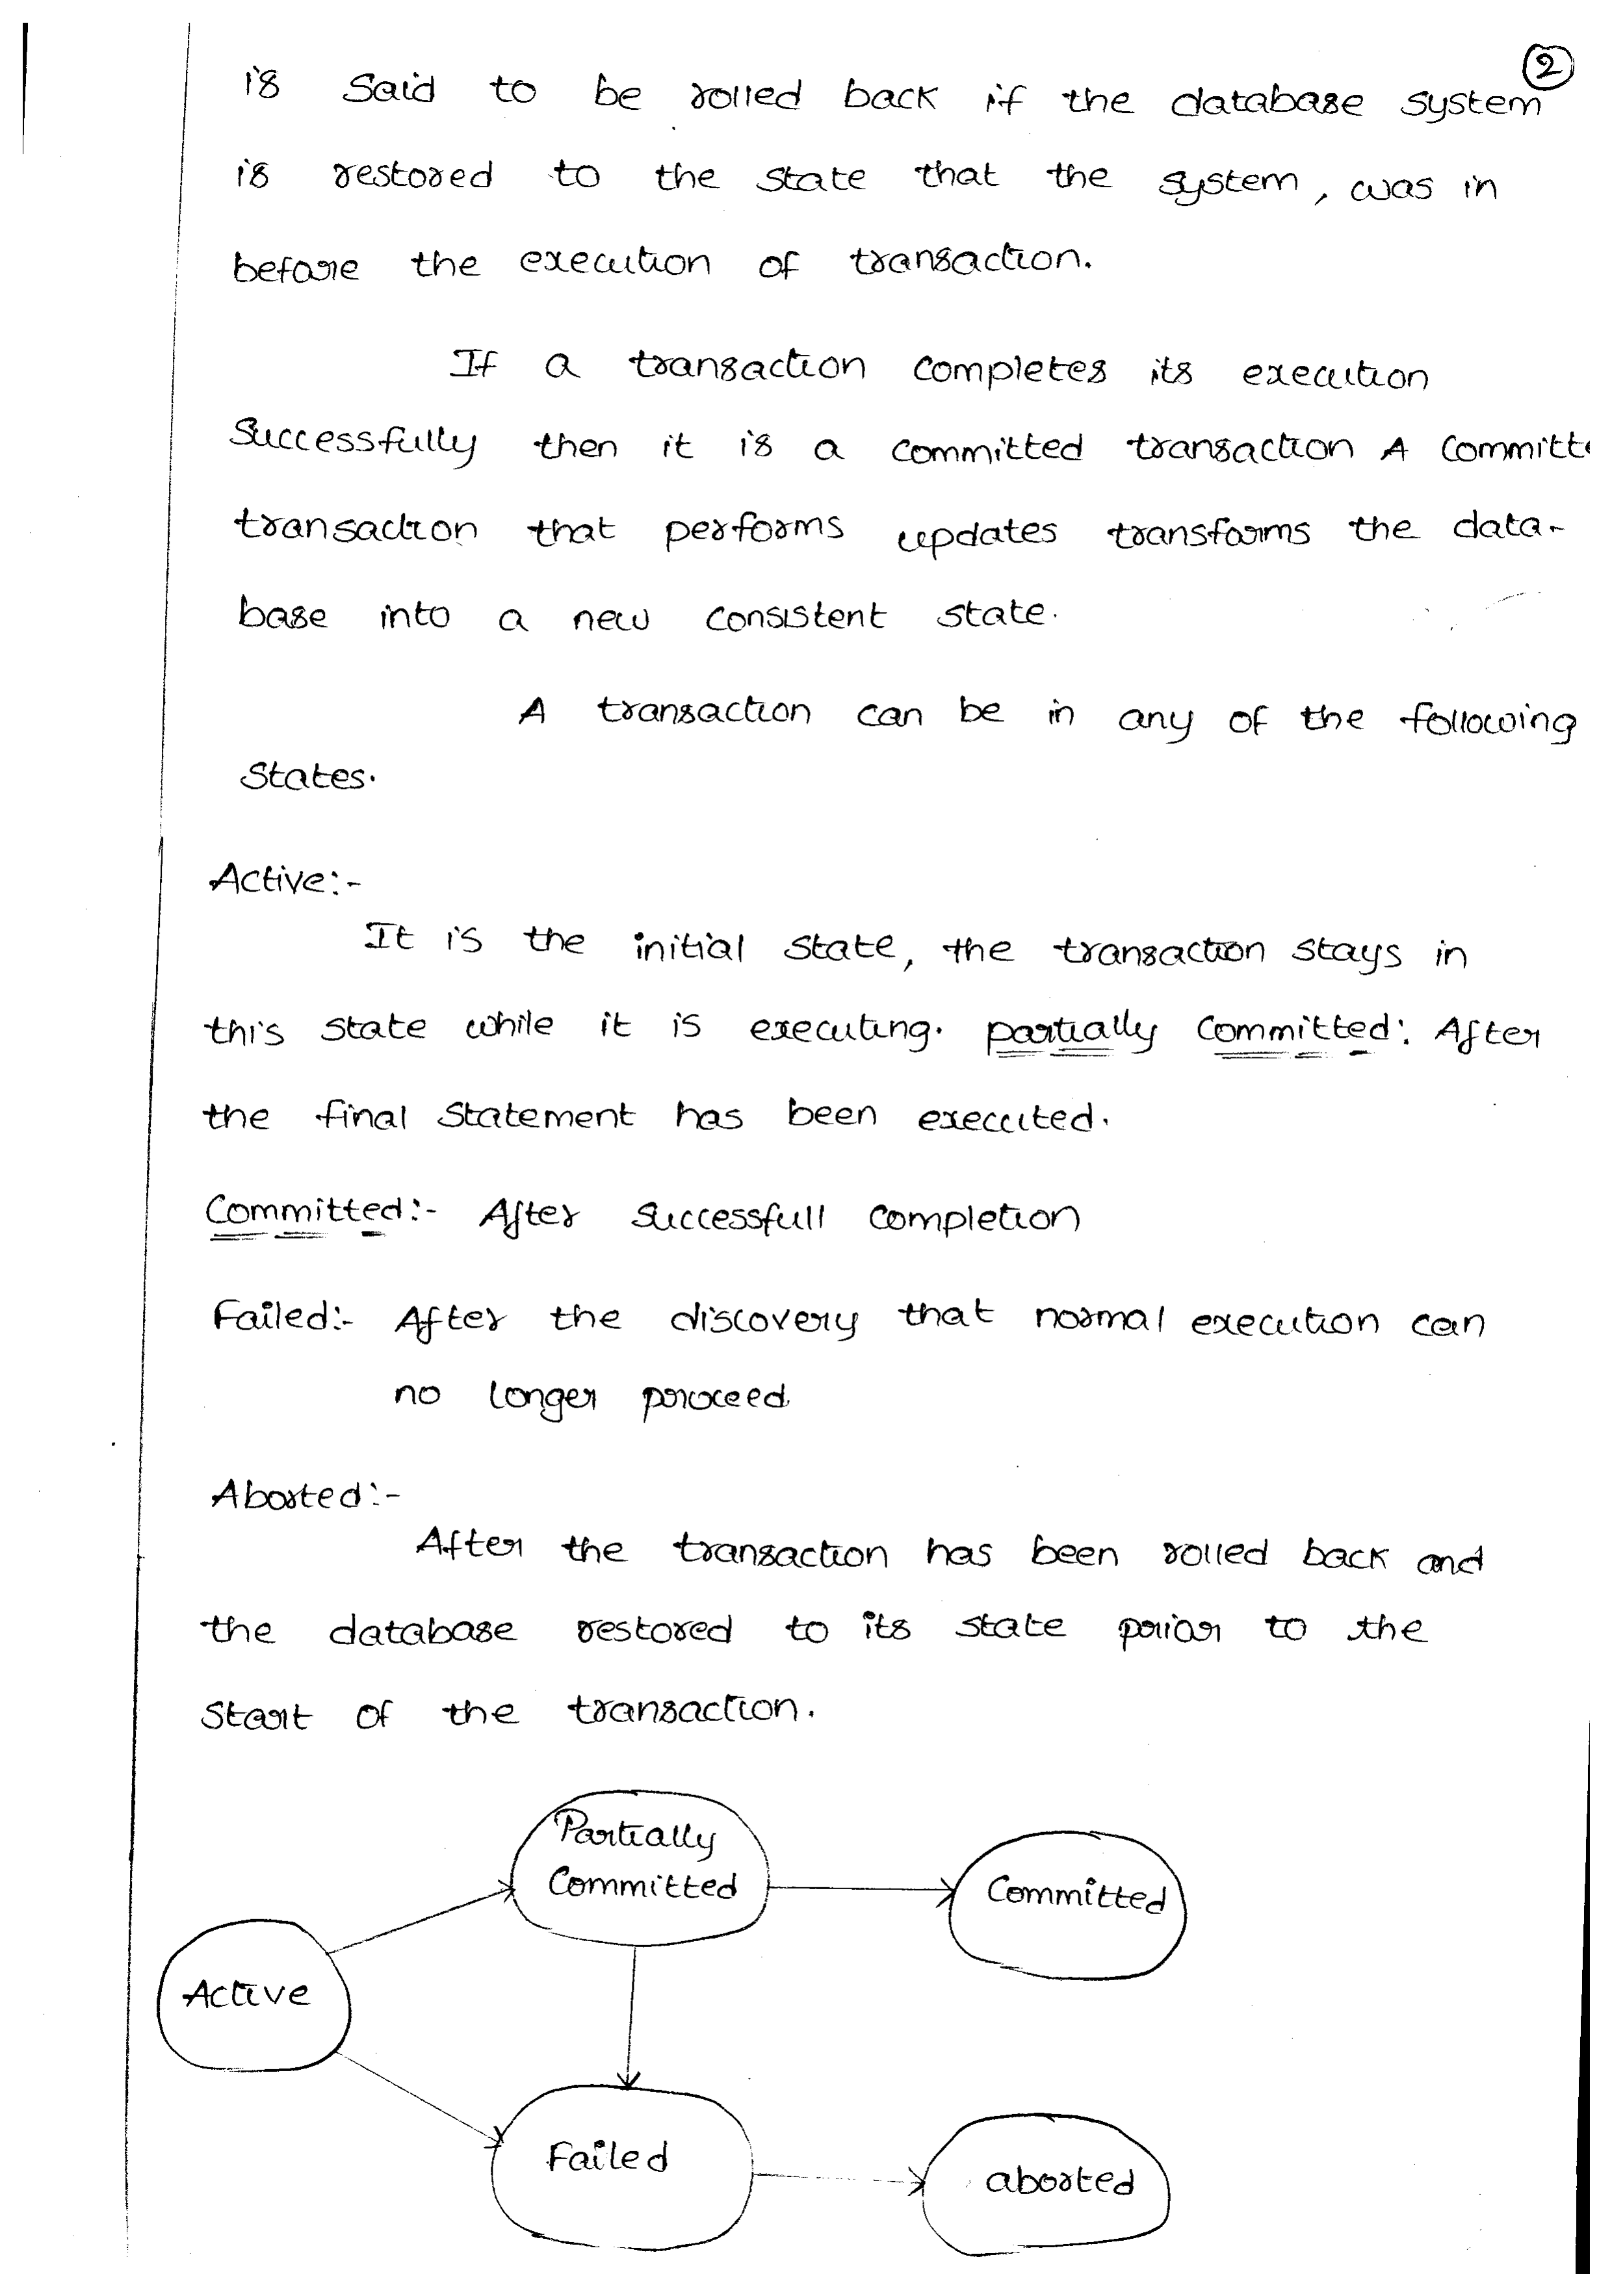 2
is said to be rolled back if the database system
is restored to the state that the system, was in
before the execution of transaction.
If a transaction completes its execution
Successfully then it is a committed transaction A committe
transaction that performs updates transforms the data-
base into a new consistent state.
A transaction can be in any of the following
states.
Active:-
It is the initial state, the transaction stays in
this state while it is executing. partially committed: After
the final statement has been executed.
Committed:- After successfull completion
Failed:- After the discovery that normal execution can
no longer proceed
Aborted:-
After the transaction has been rolled back and
the database restored to its state prior to the
start of the transaction.
Partially
Committed
Committed
Active
Failed
aborted